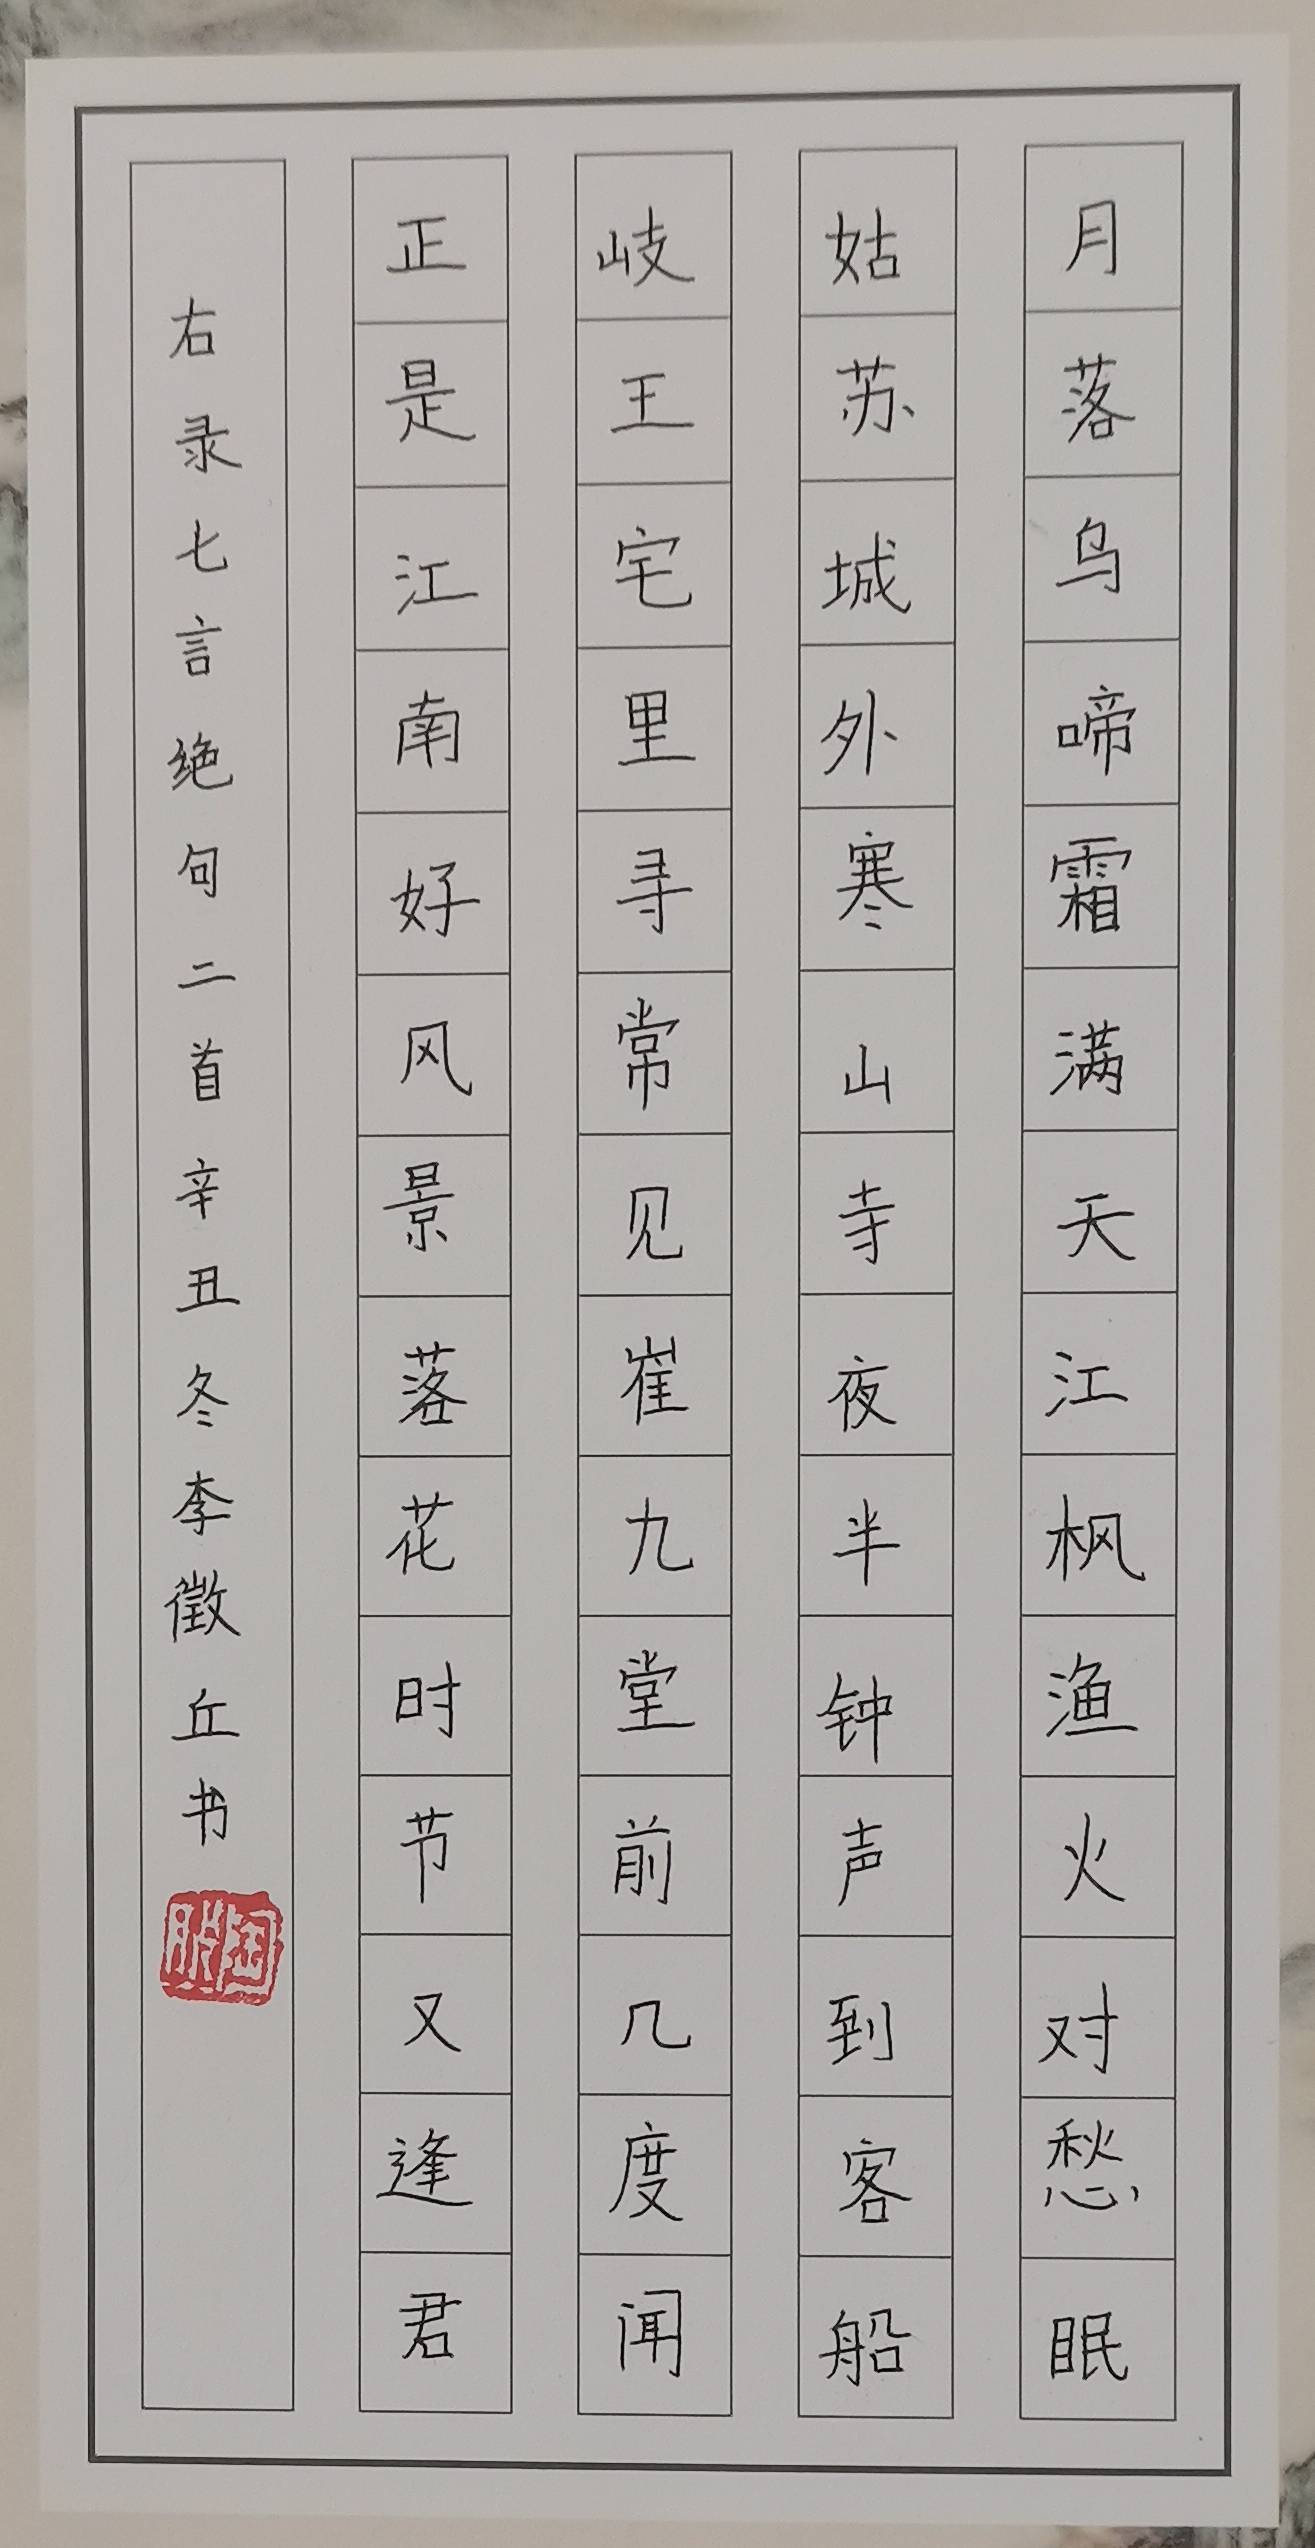 月落乌啼霜满天江枫渔火对愁眠
姑苏城外寒山寺夜半钟声到客船
岐王宅里寻常见崔九堂前几度闻
正是江南好风景落花时节又逢君
右录七言绝句二首辛丑冬李徵丘书